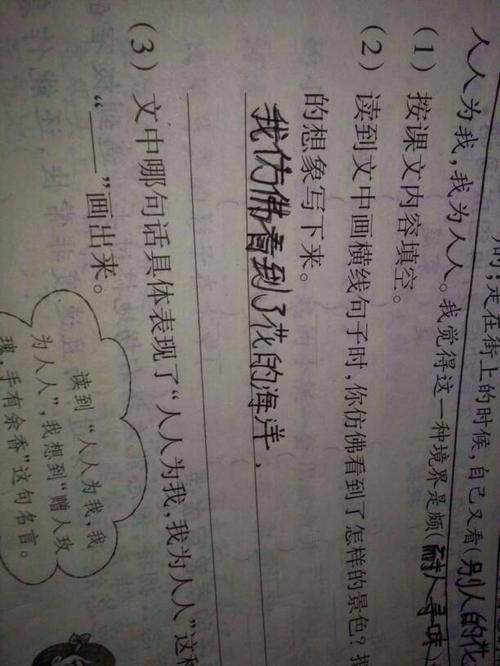 时,走在街上的时候,自己又看(别人的花
人人为我,我为人人。我觉得这一种境界是颇(耐人寻味
(1) 按课文内容填空。
(2) 读到文中画横线句子时,你仿佛看到了怎样的景色?把
的想象写下来。
我仿佛看到了花的海洋,
(3) 文中哪句话具体表现了“人人为我,我为人人”这种
“____”画出来。
读到“人人为我,我
为人人”,我想到“赠人玫
瑰,手有余香”这句名言。